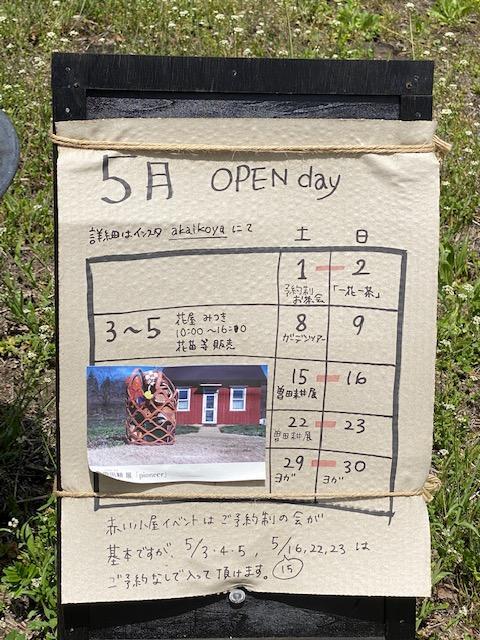 5月 OPEN day
詳細はインスタ akaikoya にて
土 日
1 2
予約制 お茶会 「一花一茶」
3〜5 花屋 みつき
10:00〜16:00
花苗等販売
8 9
ガーデンツアー
15 16
曽田耕展
22 23
曽田耕展
29 30
ヨガ ヨガ
展「pioneer」
赤い小屋イベントはご予約制の会が
基本ですが、5/3・4・5、5/16,22,23は
15
ご予約なしで入って頂けます。